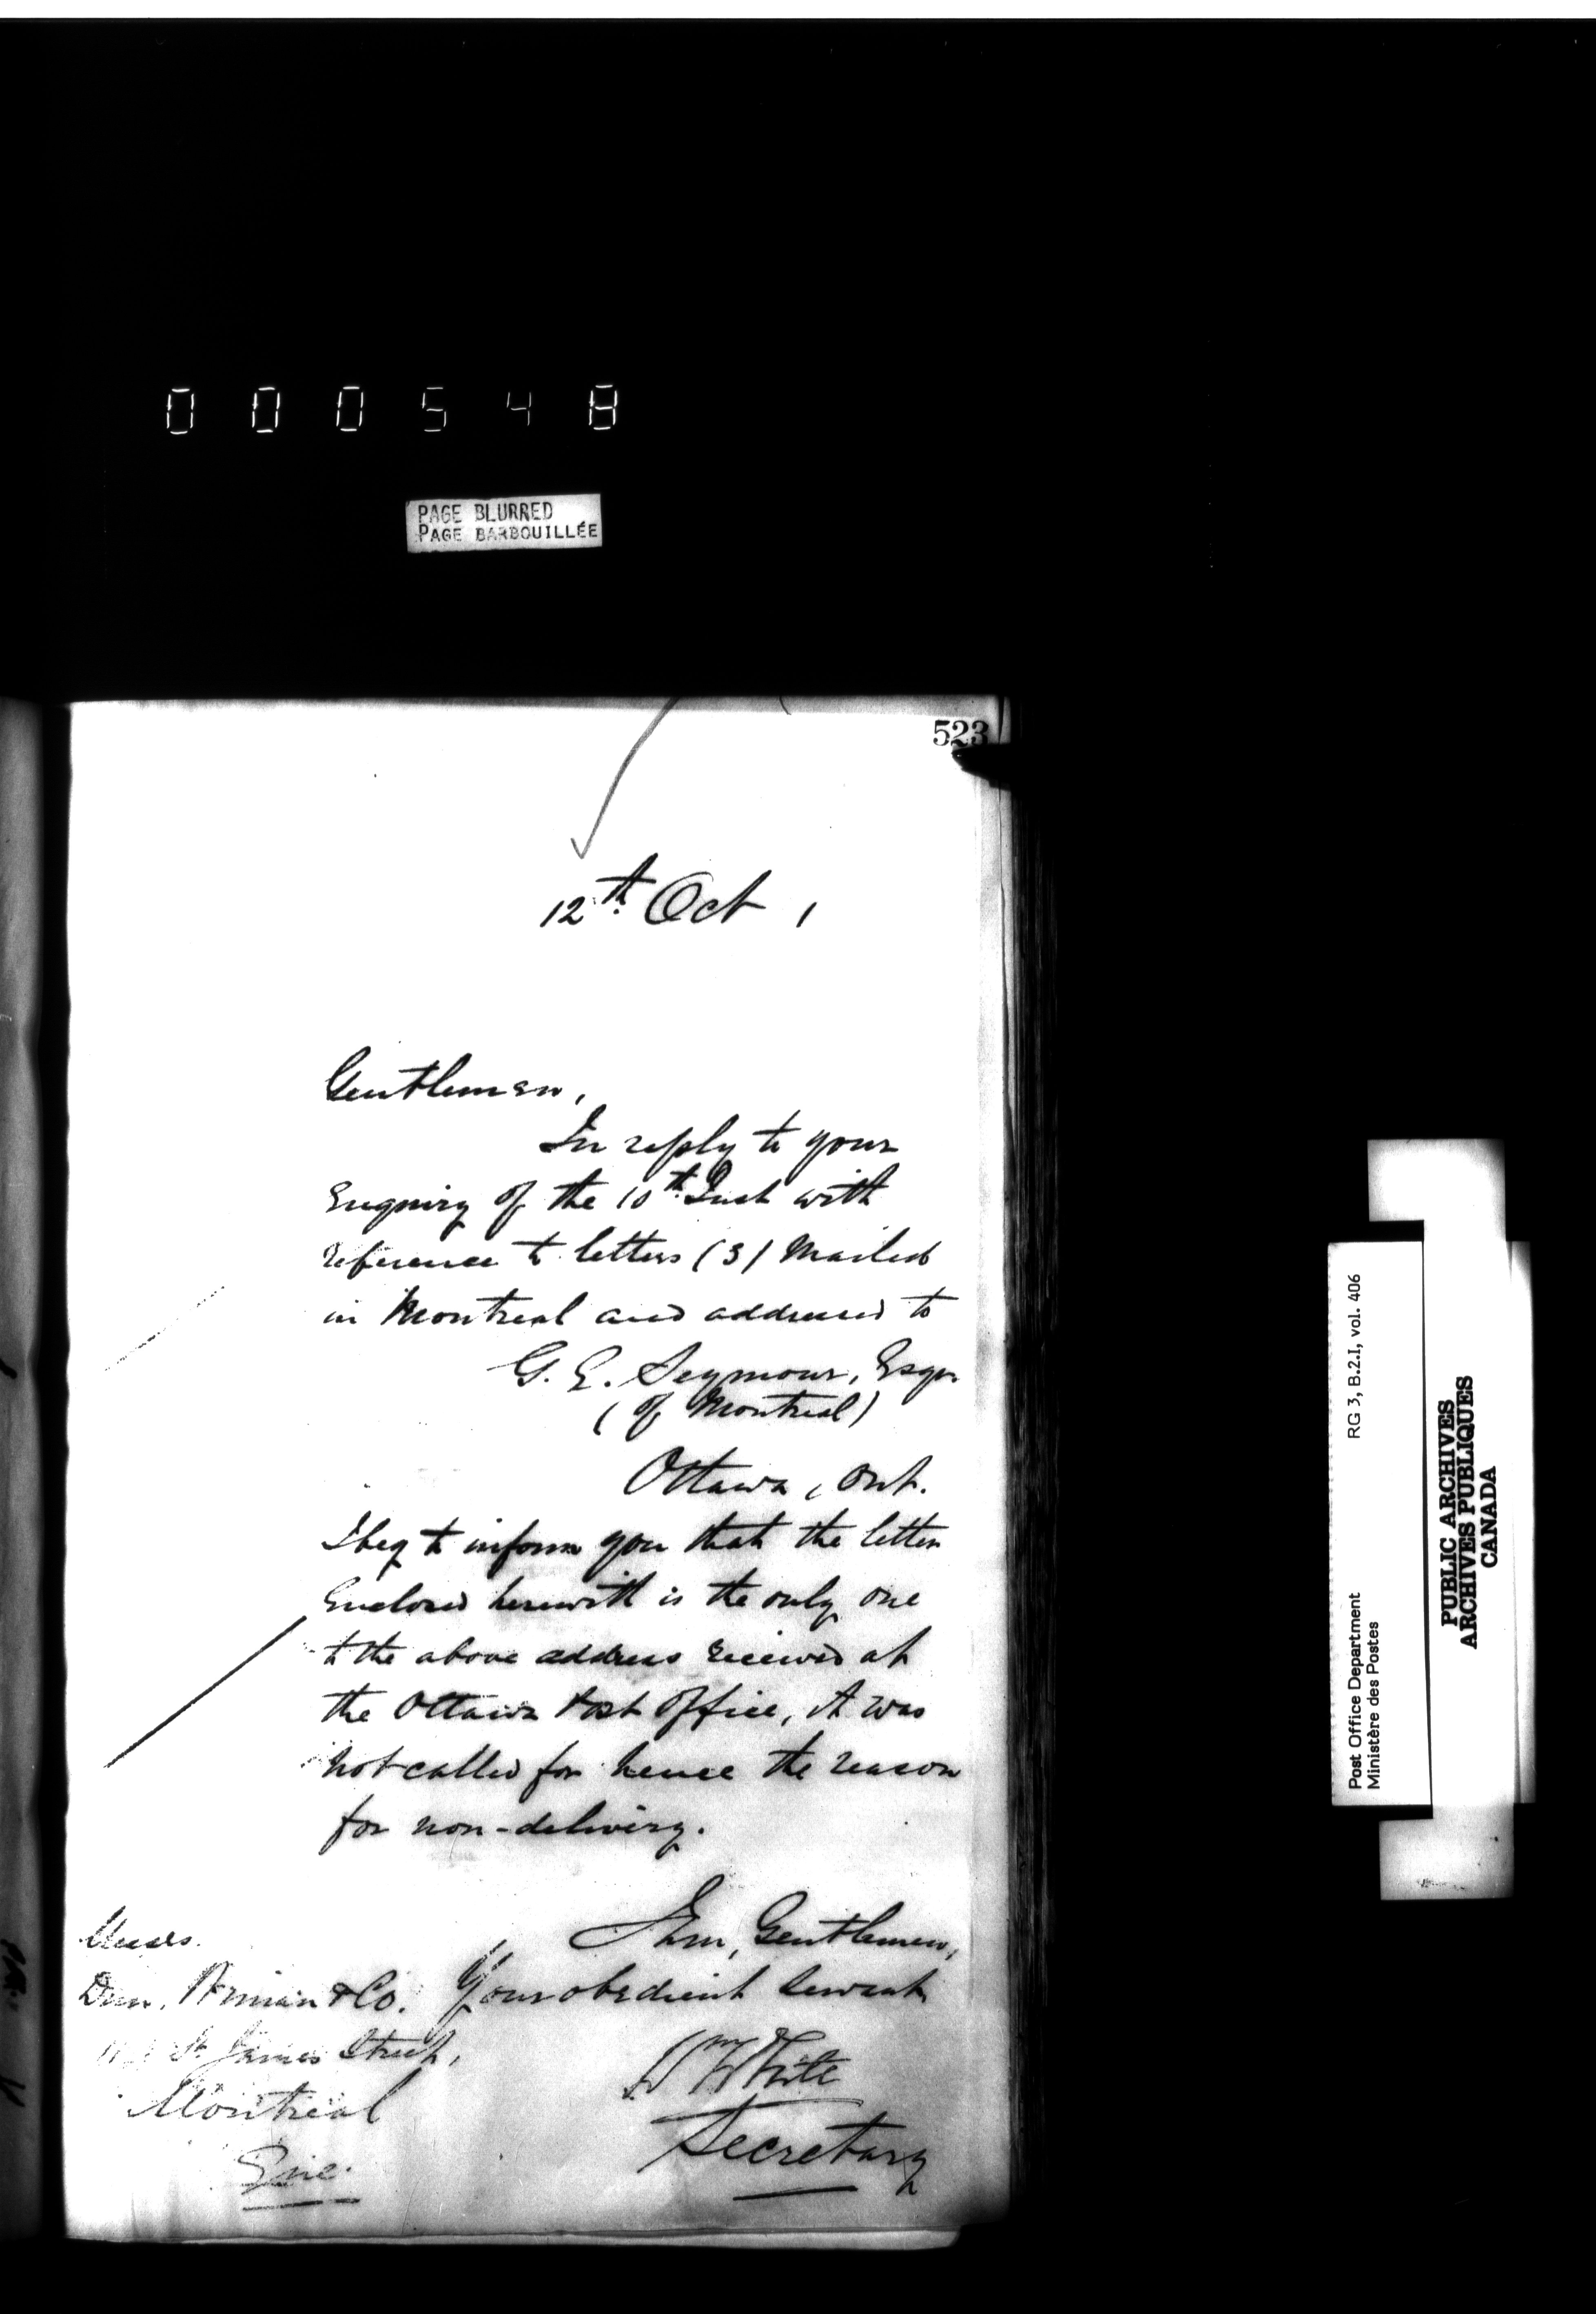 000548
PAGE BLURRED
PAGE BARBOUILLÉE
523
12th Oct,
Gentlemen,
In reply to your
Enquiry of the 10th Inst with
reference to letters (3) Mailed
in Montreal and addressed to
G. E. Seymour, Esqr.
(of Montreal)
Ottawa, Ont.
I beg to inform you that the letter
Enclosed herewith is the only one
to the above address received at
the Ottawa Post Office, it was
not called for hence the reason
for non-delivery.
I am, Gentlemen,
Your obedient Servant
Wm White
Secretary
Messrs.
Dun, Wiman & Co.
St. James Street,
Montreal
Que.
Post Office Department
Ministère des Postes
RG 3, B.2.I, vol. 406
PUBLIC ARCHIVES
ARCHIVES PUBLIQUES
CANADA